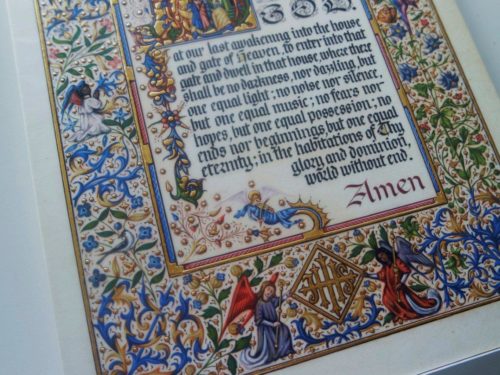 GOD,
at our last awakening into the house
and gate of Heaven, to enter into that
gate and dwell in that house, where there
shall be no darkness, nor dazzling, but
one equal light; no noise nor silence,
but one equal music; no fears nor
hopes, but one equal possession; no
ends nor beginnings, but one equal
eternity; in the habitations of Thy
glory and dominion,
world without end.
Amen
IHS